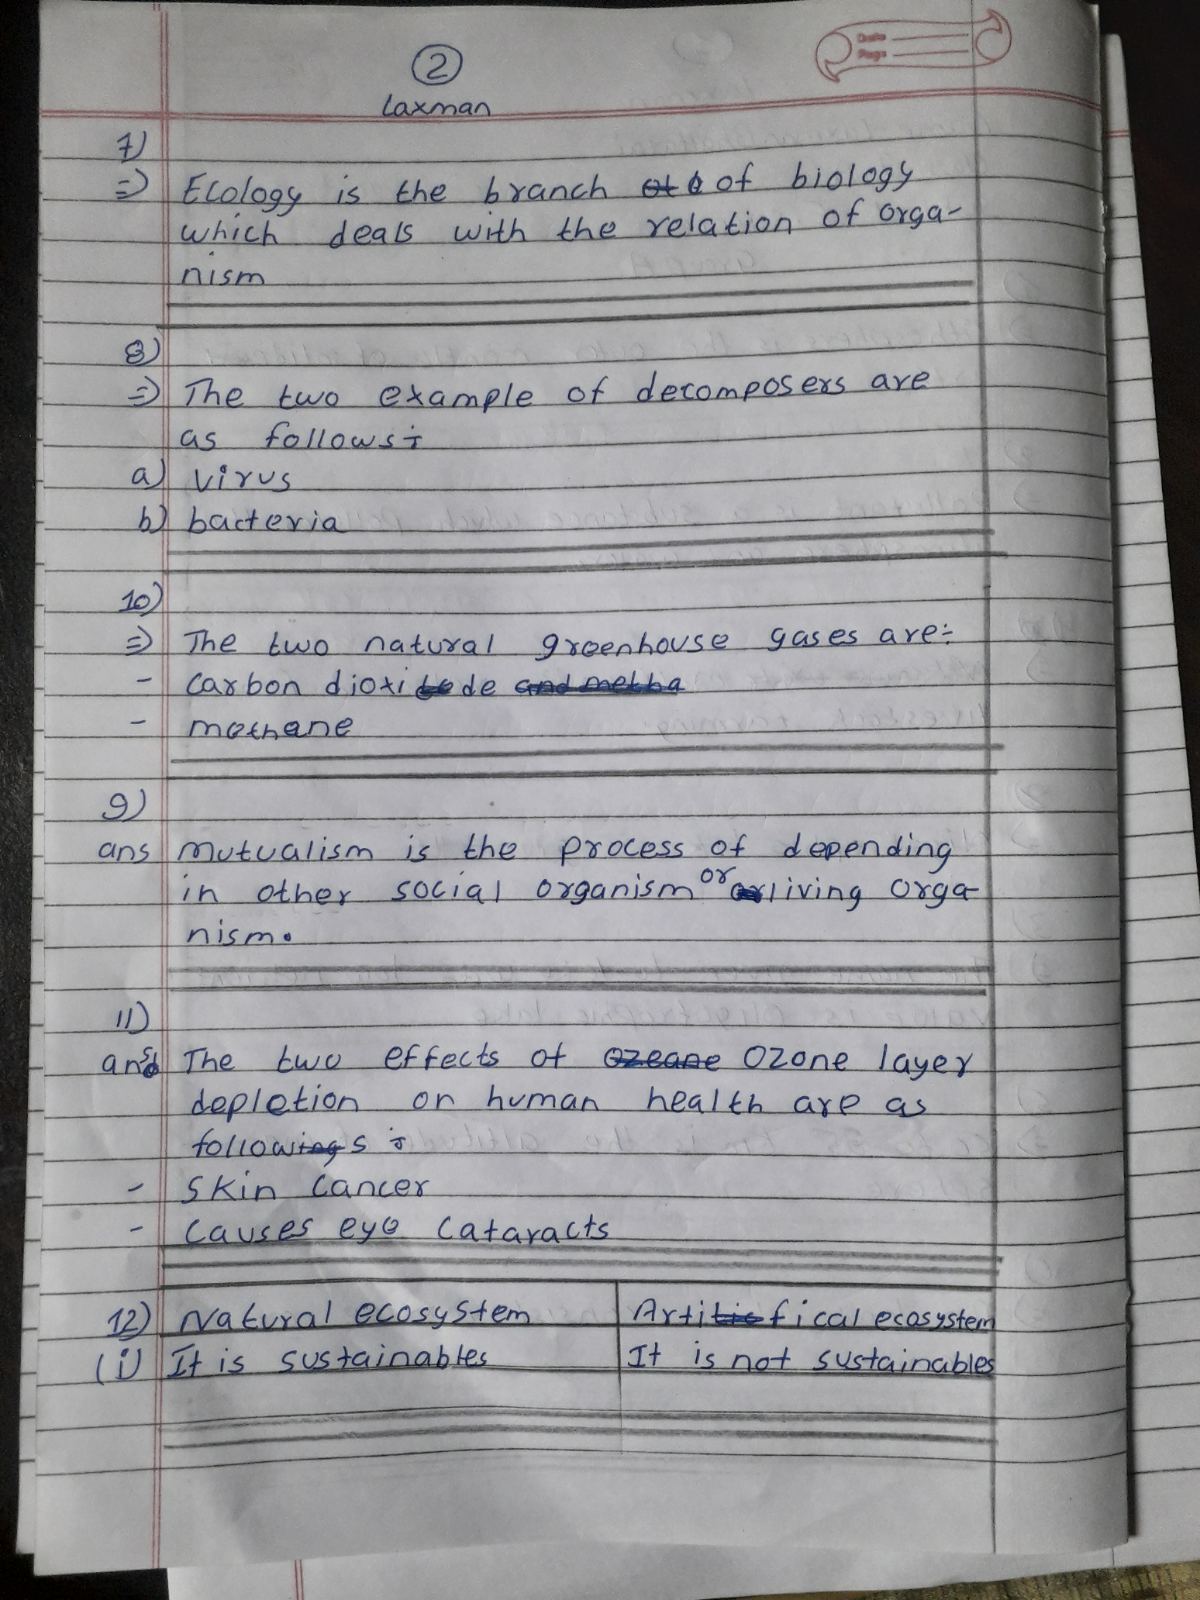 2
Date
Page
Laxman
7)
=) Ecology is the branch of biology
which deals with the relation of orga-
nism
8)
=) The two example of decomposers are
as follows:-
a) virus
b) bacteria
10)
=) The two natural greenhouse gases are:-
- carbon dioxide
- methane
9)
ans mutualism is the process of depending
in other social organism or living orga-
nism.
11)
ans The two effects of ozone layer
depletion on human health are as
follows :-
- skin cancer
- causes eye cataracts
12) Natural ecosystem Artifical ecosystem
(i) It is sustainables It is not sustainables